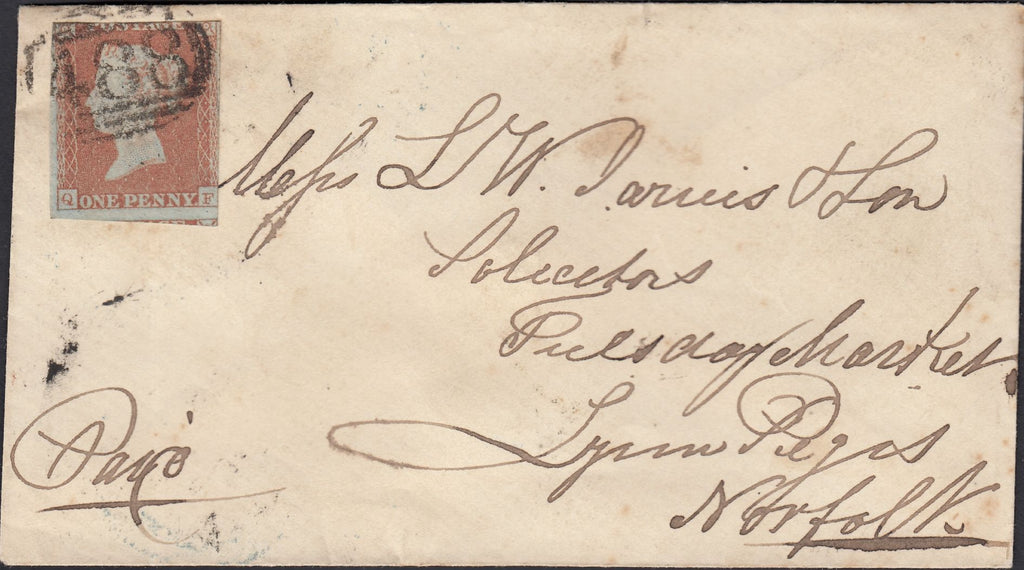 POSTAGE
488
Q ONE PENNY F
Messrs L W. Jarvis & Son
Solicitors
Tuesday Market
Lynn Regis
Norfolk
Paid